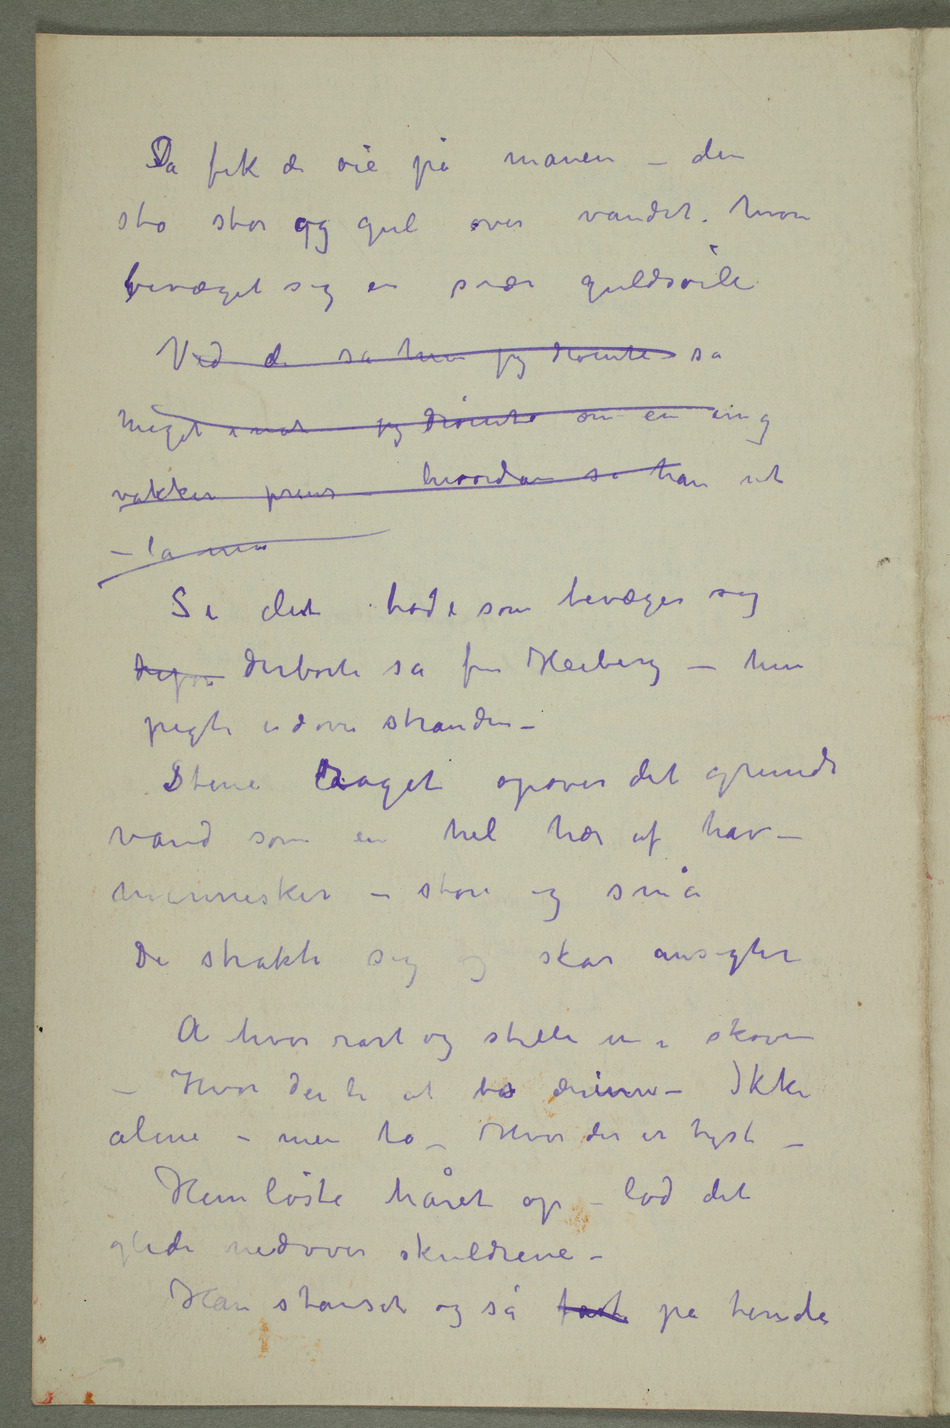 Da fik de øie på månen – den
sto stor og gul over vandet. hvor
bevæget sig en svær guldsøile
Ved de sa hun jeg drømte så
meget inat jeg drømte om en ung
vakker prins – hvordan så han ut
– la mæ
Se det hode som bevæger sig
derborte sa fru Heiberg – hun
pegte udover stranden –
Stene raget opover det grunde
vand som en hel hær af hav–
mennesker – store og små
De strakte sig og skar ansigter
A hvor rart og stille i skoven
– Hvor deilt at bo derinne – Ikke
alene – men to – Hvor der er tyst –
Hun løste håret op – lod det
glide nedover skuldrene –
Han stanset og så fast på hende